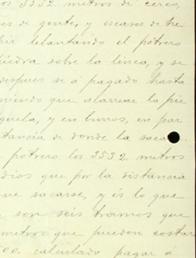 os 3532 metros de cerco,
es de gente, y escaso de tre
pie delantando el potrero
iedra sobre la linea, y se
despues se á pagado hasta
niendo que acarrear la pie
en burros, en par
tancia de donde la saca
potrero los 3532 metros
dios que por la distancia
ue sacarse, y és lo que
son seis tramos que
metros que pueden costar
oo calculado pagar á